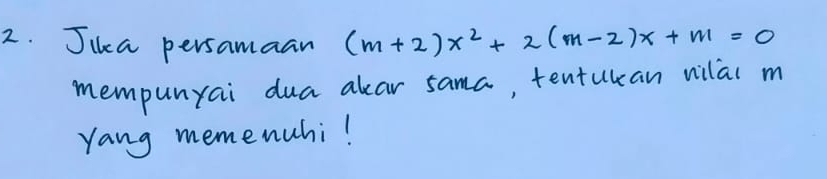 2. Jika persamaan (m+2)x² + 2(m-2)x + m = 0
mempunyai dua akar sama, tentukan nilai m
yang memenuhi!